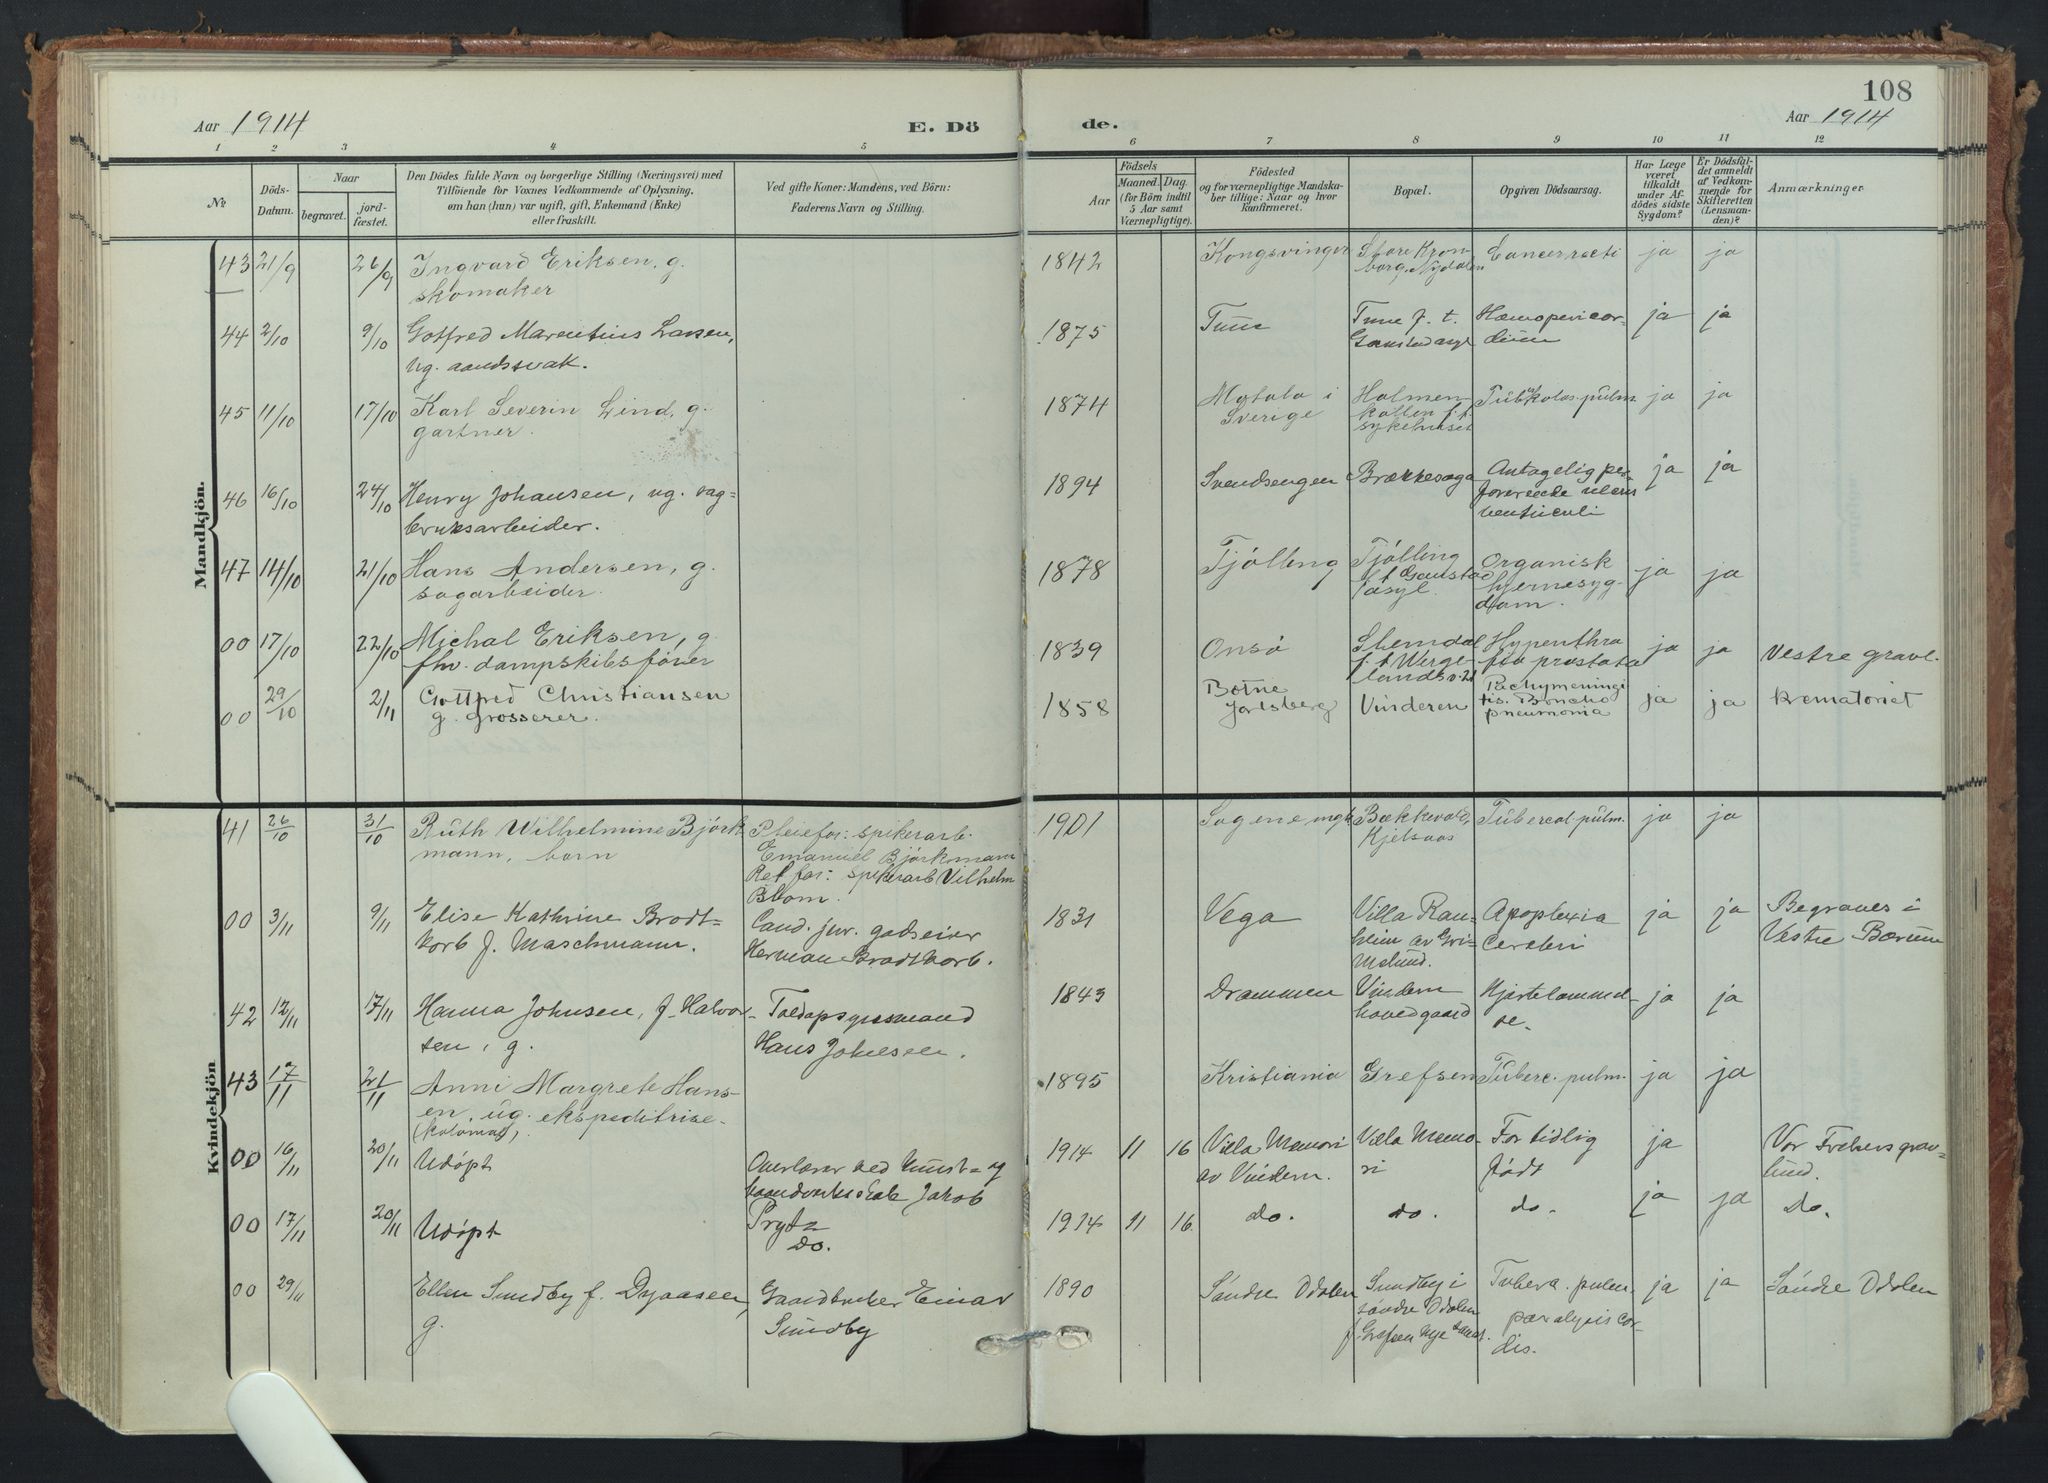 108
Aar 1914
E. Dö
de.
Aar 1914
1 2 3 4 5 6 7 8 9 10 11 12
No.
Döds-
Datum.
Naar
begravet.
jord-
fæstet.
Den Dödes fulde Navn og borgerlige Stilling (Næringsvei) med
Tilföiende for Voxnes Vedkommende af Oplysning,
om han (hun) var ugift, gift, Enkemand (Enke)
eller fraskilt.
Ved gifte Koner: Mandens, ved Börn:
Faderens Navn og Stilling.
Aar
Födsels
Maaned. Dag.
(for Börn indtil
5 Aar samt
Værnepligtige).
Födested
og for værnepligtige Mandska-
ber tillige: Naar og hvor
konfirmeret.
Bopæl.
Opgiven Dödsaarsag.
Har Læge
været
tilkaldt
under Af-
dödes sidste
Sygdom?
Er Dödsfal-
det anmeldt
af Vedkom-
mende for
Skifteretten
(Lensman-
den)?
Anmærkninger
Mandkjön.
43 21/9 26/9 Ingvard Eriksen, g.
skomaker
1842 Kongsvinger Store Kron-
borg, Nydalen
Cancer recti ja ja
44 2/10 9/10 Gotfred Marentius Larsen,
ug. aandssvak.
1875 Tune Tune f. t.
Gaustad asyl
Hæmopericar-
dium ja ja
45 11/10 17/10 Karl Severin Lind, g.
gartner.
1874 Motala i
Sverige
Holmen-
kollen f. t.
sykehuset
Tuberkolos. pulm. ja ja
46 16/10 24/10 Henry Johansen, ug. sag-
bruksarbeider.
1894 Svendsengen Brækkesaga Antagelig per-
forerende ulcus
ventriculi ja ja
47 14/10 21/10 Hans Andersen, g.
sagarbeider.
1878 Tjølling Tjølling
f t Gaustad
asyl.
Organisk
hjernesyg-
dom. ja ja
00 17/10 22/10 Michal Eriksen, g.
fhv. dampskibsfører
1839 Onsø Slemdal
f. t Werge-
landsv. 21
Hypenthro
fia prostata ja ja Vestre gravl.
00 29/10 2/11 Gottfred Christiansen
g. grosserer.
1858 Botne
Jarlsberg
Vinderen Pachymeningi
tis. Broncho
pneumonia ja ja krematoriet
Kvindekjön
41 26/10 31/10 Ruth Wilhelmine Bjørk
mann, barn
Pleiefar: spikerarb.
Emanuel Bjørkmann
Ret far: spikerarb Vilhelm
Blom.
1901 Sagene mgh Bækkevold,
Kjelsaas
Tubercul. pulm. ja ja
00 3/11 9/11 Elise Kathrine Brodt-
korb f. Maschmann.
Cand. jur. godseier
Herman Brodtkorb.
1831 Vega Villa Ran-
heim av Gri-
melund.
Apoplexia
Cerebri ja ja Begraves i
Vestre Bærum
42 12/11 17/11 Hanna Johnsen, f. Halvor-
sen, g.
Toldopsynsmand
Hans Johnsen.
1843 Drammen Vindern
hovedgaard
Hjertelammel-
se. ja ja
43 17/11 21/11 Anni Margrete Hans-
en, ug. ekspeditrise.
1895 Kristiania Grefsen Tuberc. pulm. ja ja
00 16/11 20/11 Udøpt
Overlærer ved Kunst- og
haandverksskole Jakob
Prytz
1914 11 16 Villa Memori
av Vindern.
Villa Memo-
ri
For tidlig
født ja Vor Frelsers grav-
lund.
00 17/11 20/11 Udøpt Do.
1914 11 16. do. do. do. ja ja Do.
00 29/11 Ellen Sundby f. Dyaasen,
g.
Gaardbruker Einar
Sundby
1890 Søndre Odalen Sundby i
søndre Odalen
f. Grefsen nye sanat.
Tuberc. pulm.
paralysis cor-
dis. ja ja Søndre Odalen